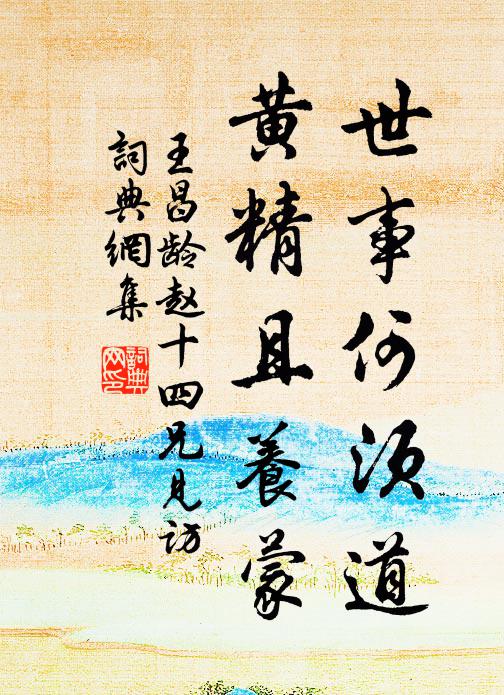 世事何须道
黄精且養蒙
王昌龄赵十四兄見訪
詞典網集
詞典网印